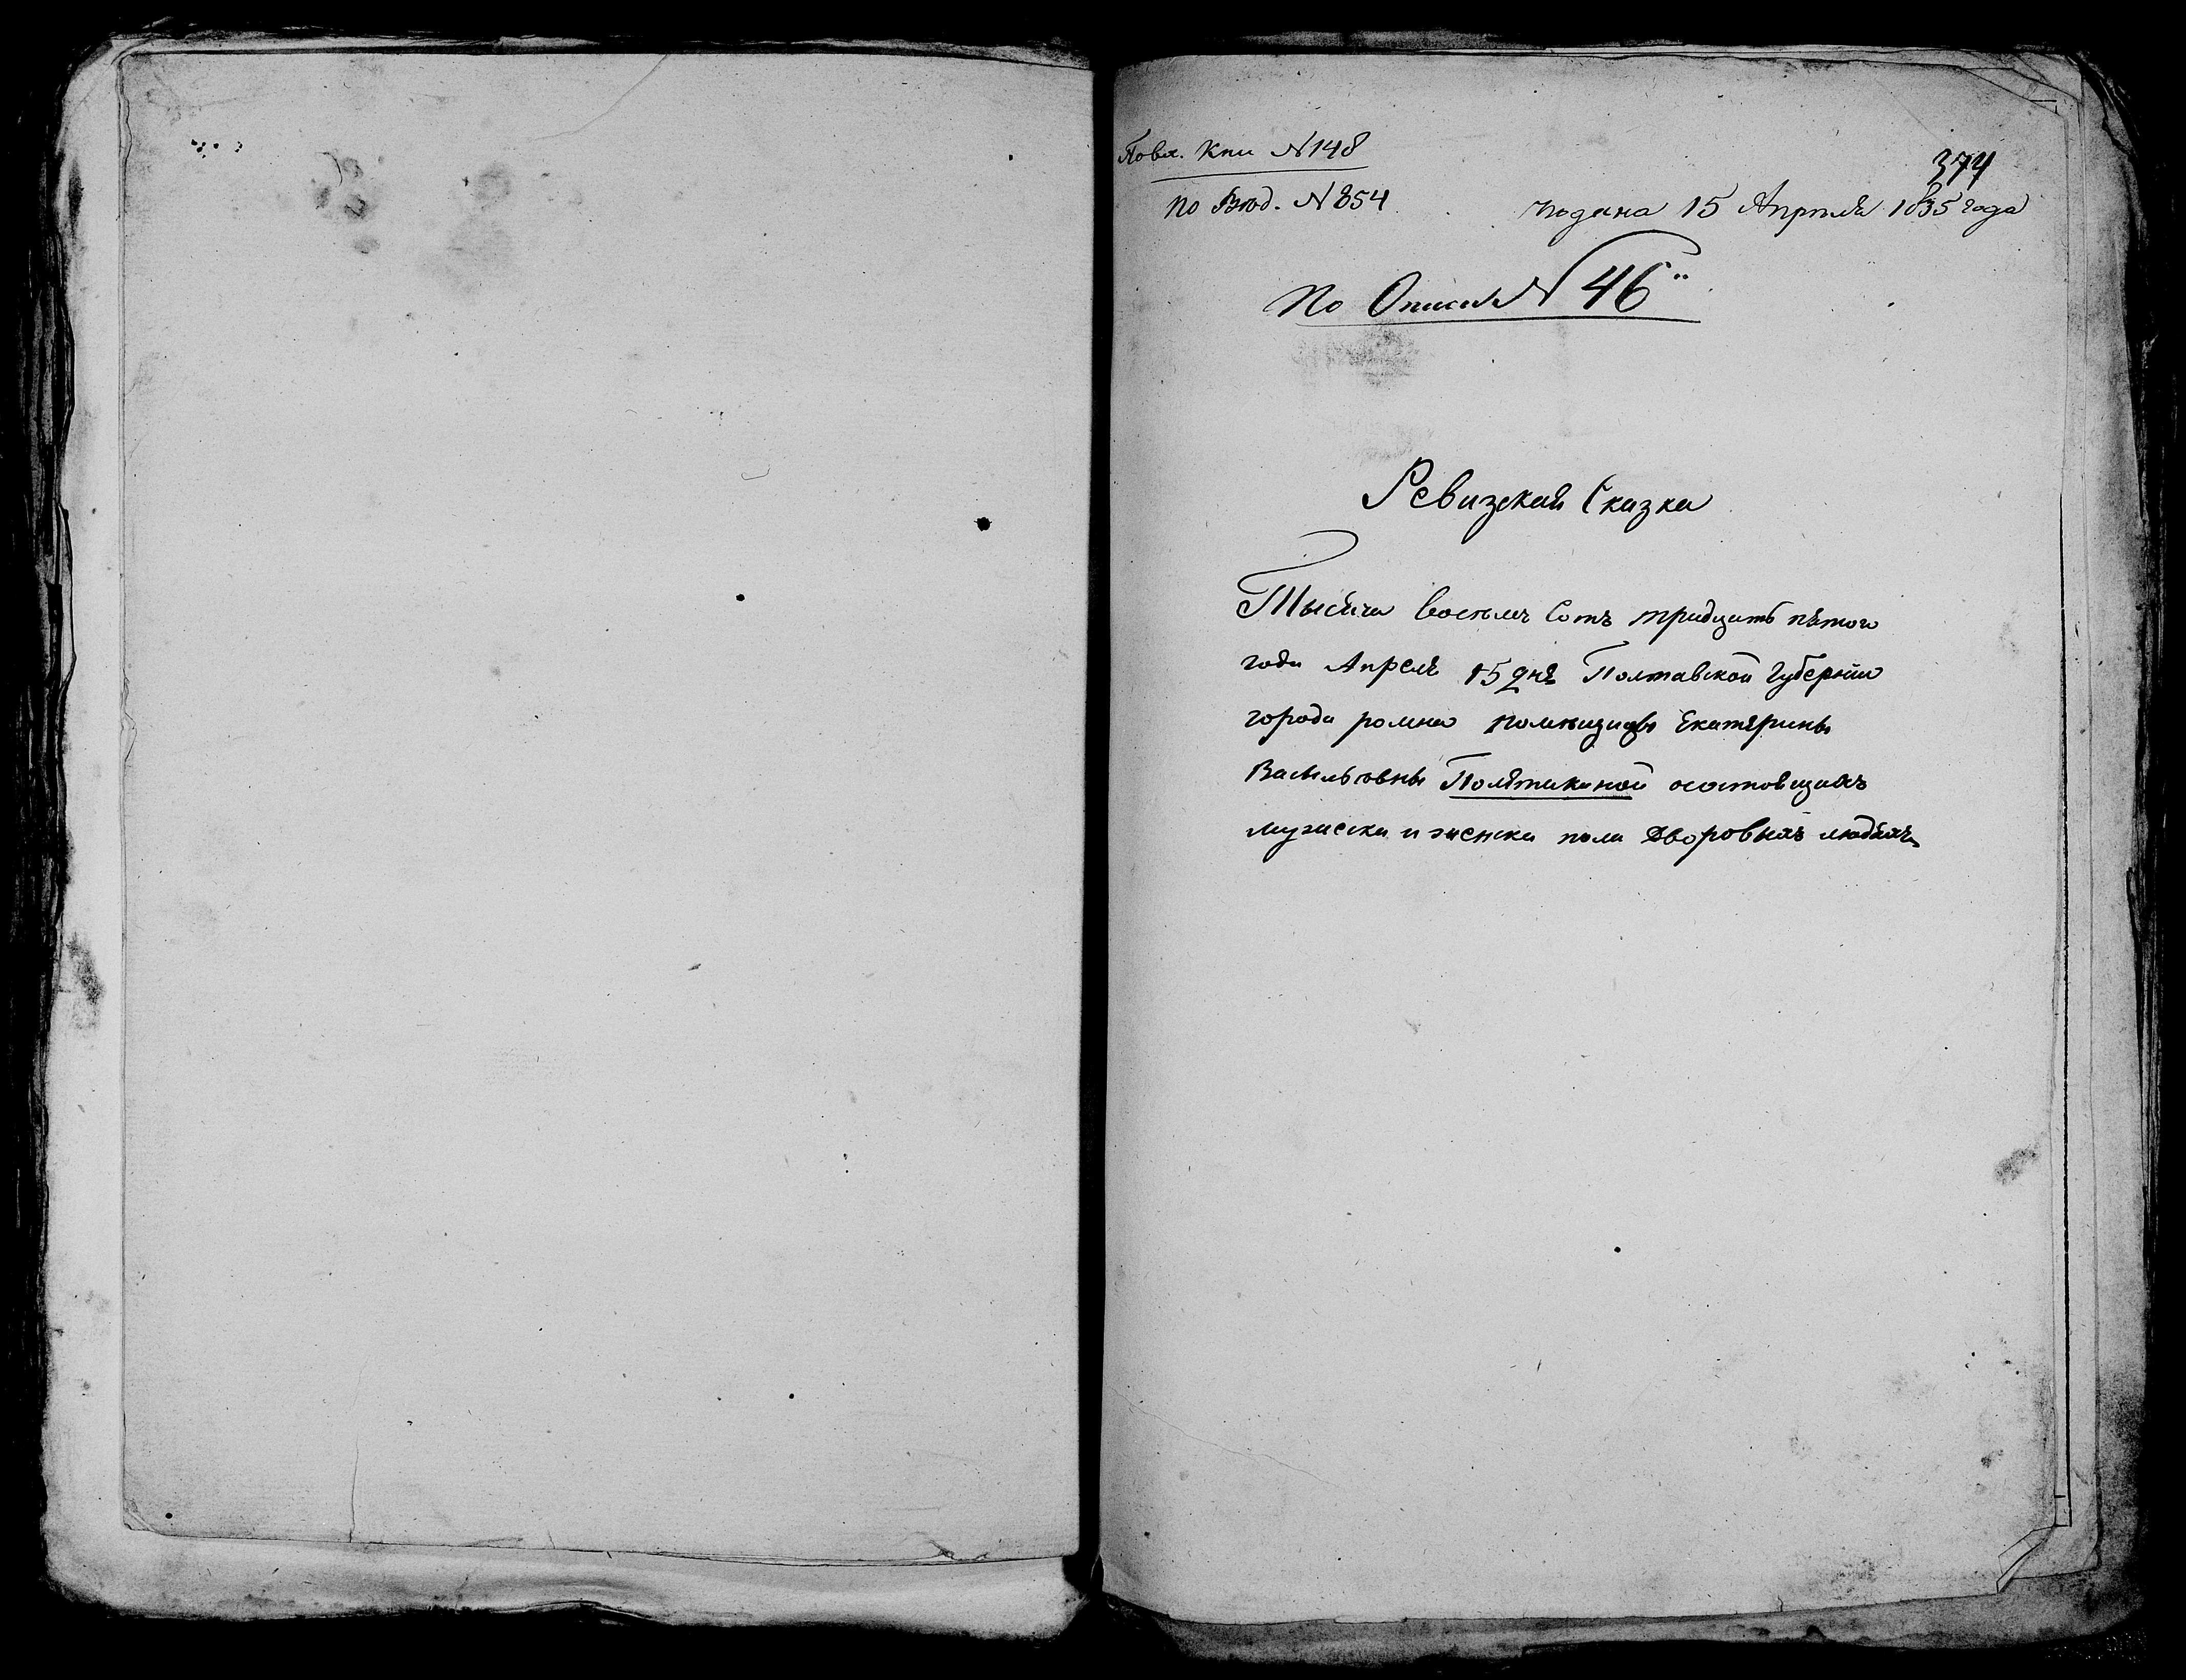 По Вход. № 854
374
подана 15 Апреля 1835 года
По Описи № 46
Ревизская Сказка
Тысяча восемь Сотъ тридцать пятого
года Апреля 15 дня Полтавской Губернии
города ромна помещицы Екатерины
Васильевны Полѣтикиной осостовщихъ
мужеска и женска пола Дворовыхъ людяхъ